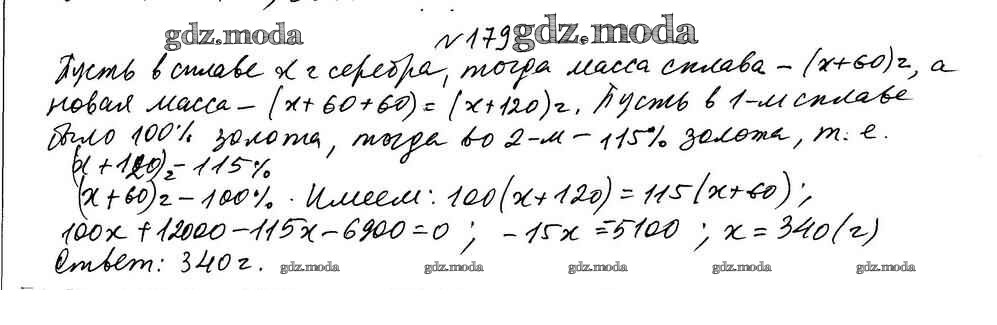 gdz.moda №179 gdz.moda
Пусть в сплаве x г серебра, тогда масса сплава – (x+60) г, а
новая масса – (x+60+60) = (x+120) г. Пусть в 1-м сплаве
было 100% золота, тогда во 2-м – 115% золота, т. е.
(x+120) г – 115%
(x+60) г – 100%. Имеем: 100(x+120) = 115(x+60);
100x+12000-115x-6900=0; -15x=5100; x=340 (г)
Ответ: 340 г.
gdz.moda gdz.moda gdz.moda gdz.moda gdz.moda